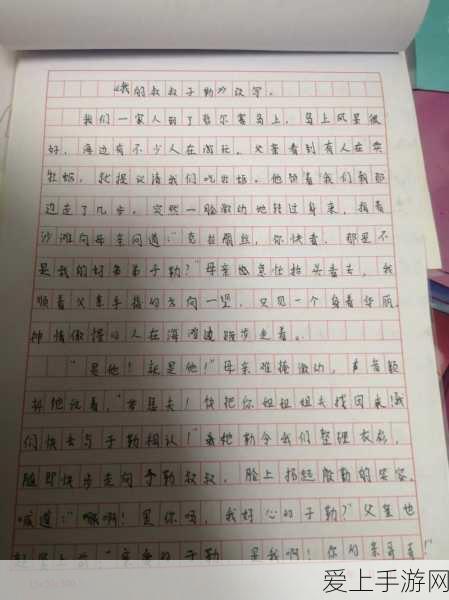 《我的叔叔于勒》改写。
我们一家人到了哲尔赛岛上，岛上风景很
好，海边有不少人在游玩。父亲看到有人在卖
牡蛎，就提议请我们吃牡蛎。他领着我们朝那
边走了几步，突然一脸激动地转过身来，指着
沙滩向母亲问道：“克拉丽丝，你快看，那是不
是我的好弟弟于勒？”母亲也急忙抬头看去，我
顺着父亲手指的方向一望，只见一个身着华丽，
神情傲慢的人在海滩边踱步走着。
“是他！就是他！”母亲难掩激动，声音颤
抖地说着，“若瑟夫！快把你姐姐姐夫找回来！我
们快去与于勒相认！”我把勒令我们整理衣衫，
随即快步走向于勒叔叔，脸上扬起殷勤的笑容，
喊道：“啊！是你吗，我好心的于勒？”父亲也
于勒，是我啊！你的亲哥哥！”
爱上手游网